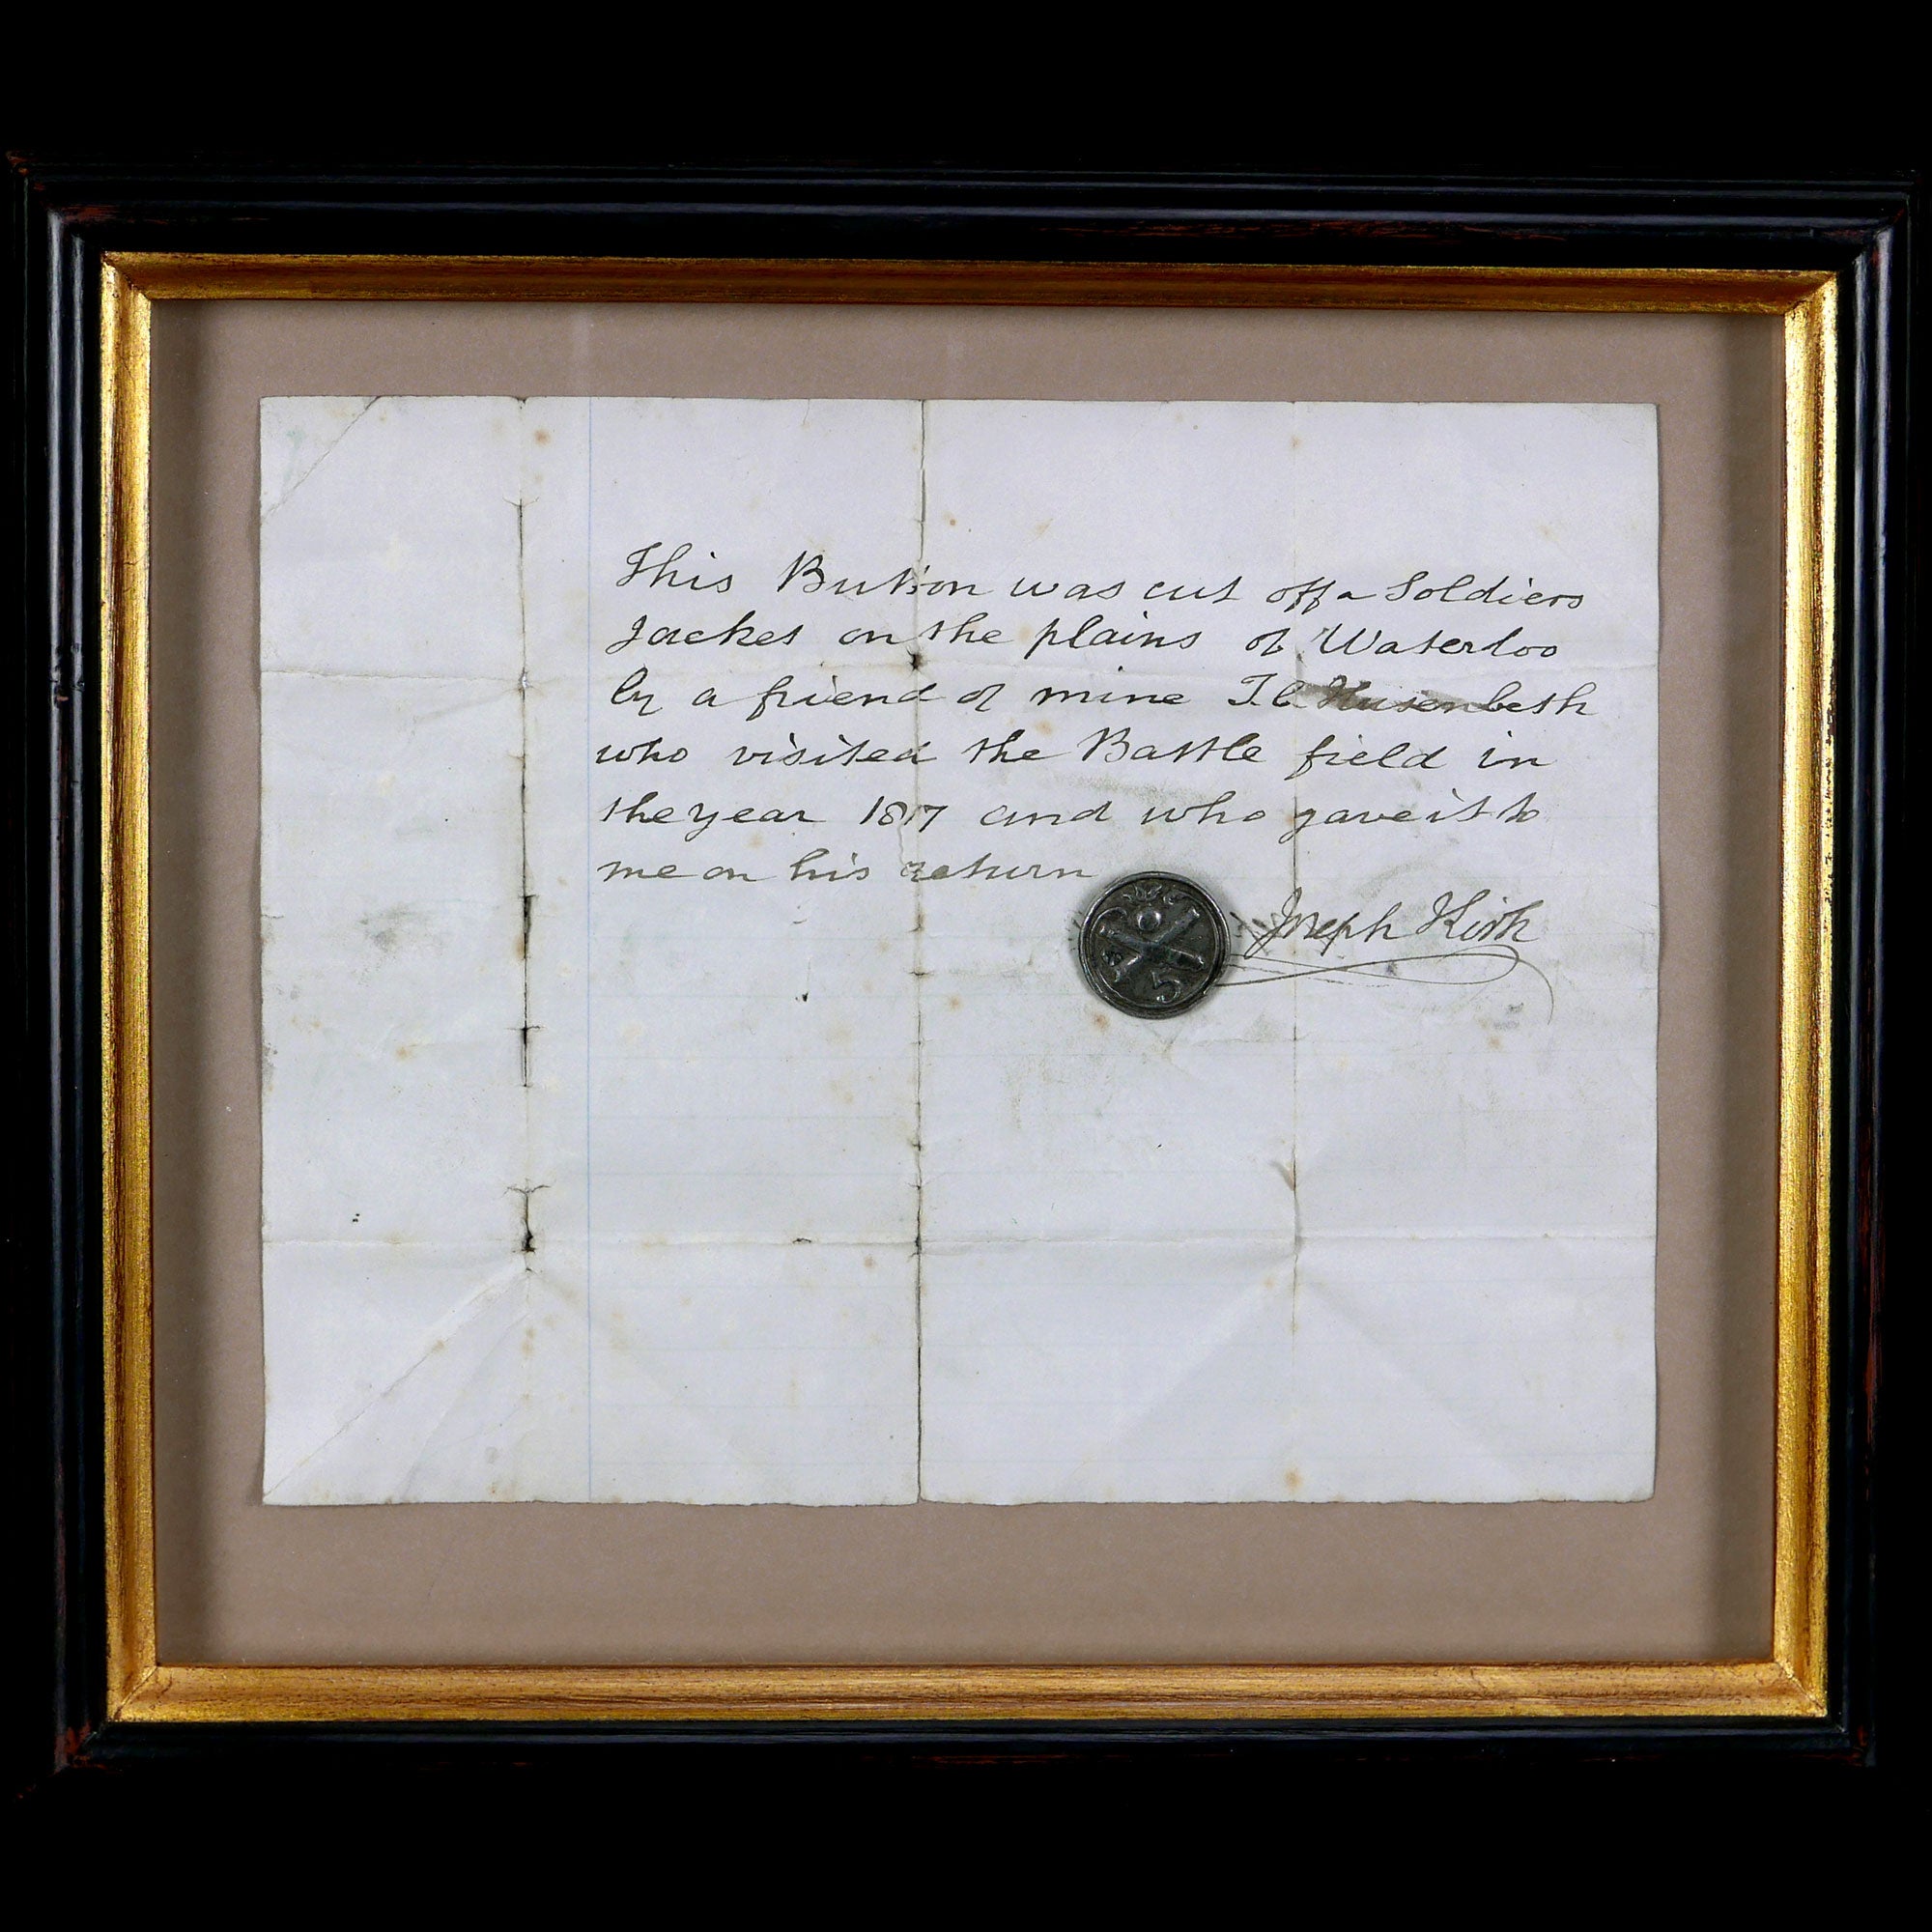 This Button was cut off a Soldiers
Jacket on the plains of Waterloo
by a friend of mine T.C. Husenbeth
who visited the Battle field in
the year 1817 and who gave it to
me on his return
Joseph Kirk
5